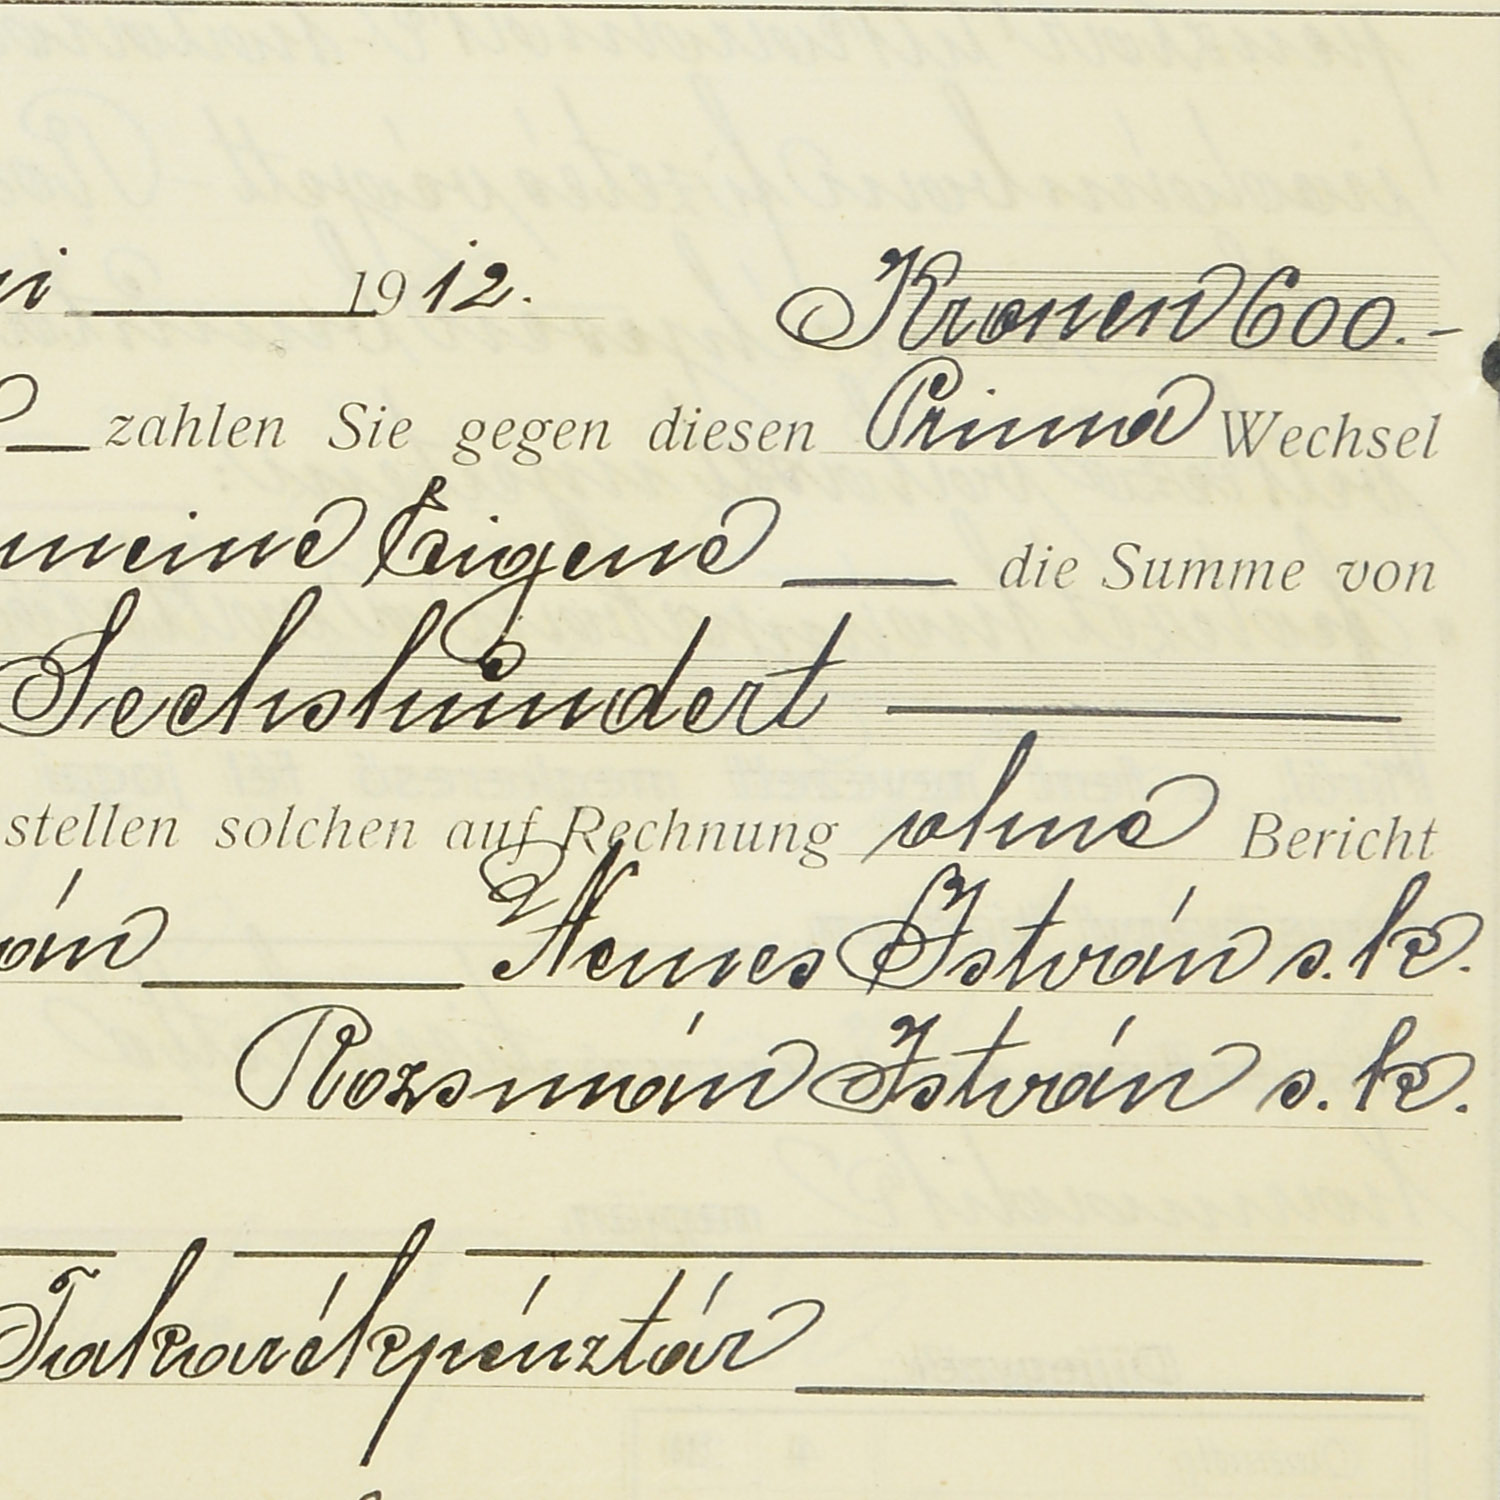 1912. Kronen 600.-
zahlen Sie gegen diesen Prima Wechsel
meine Eigene die Summe von
Sechshundert
stellen solchen auf Rechnung ohne Bericht
Nemes István s. k.
Rozsmán István s. k.
Takarékpénztár